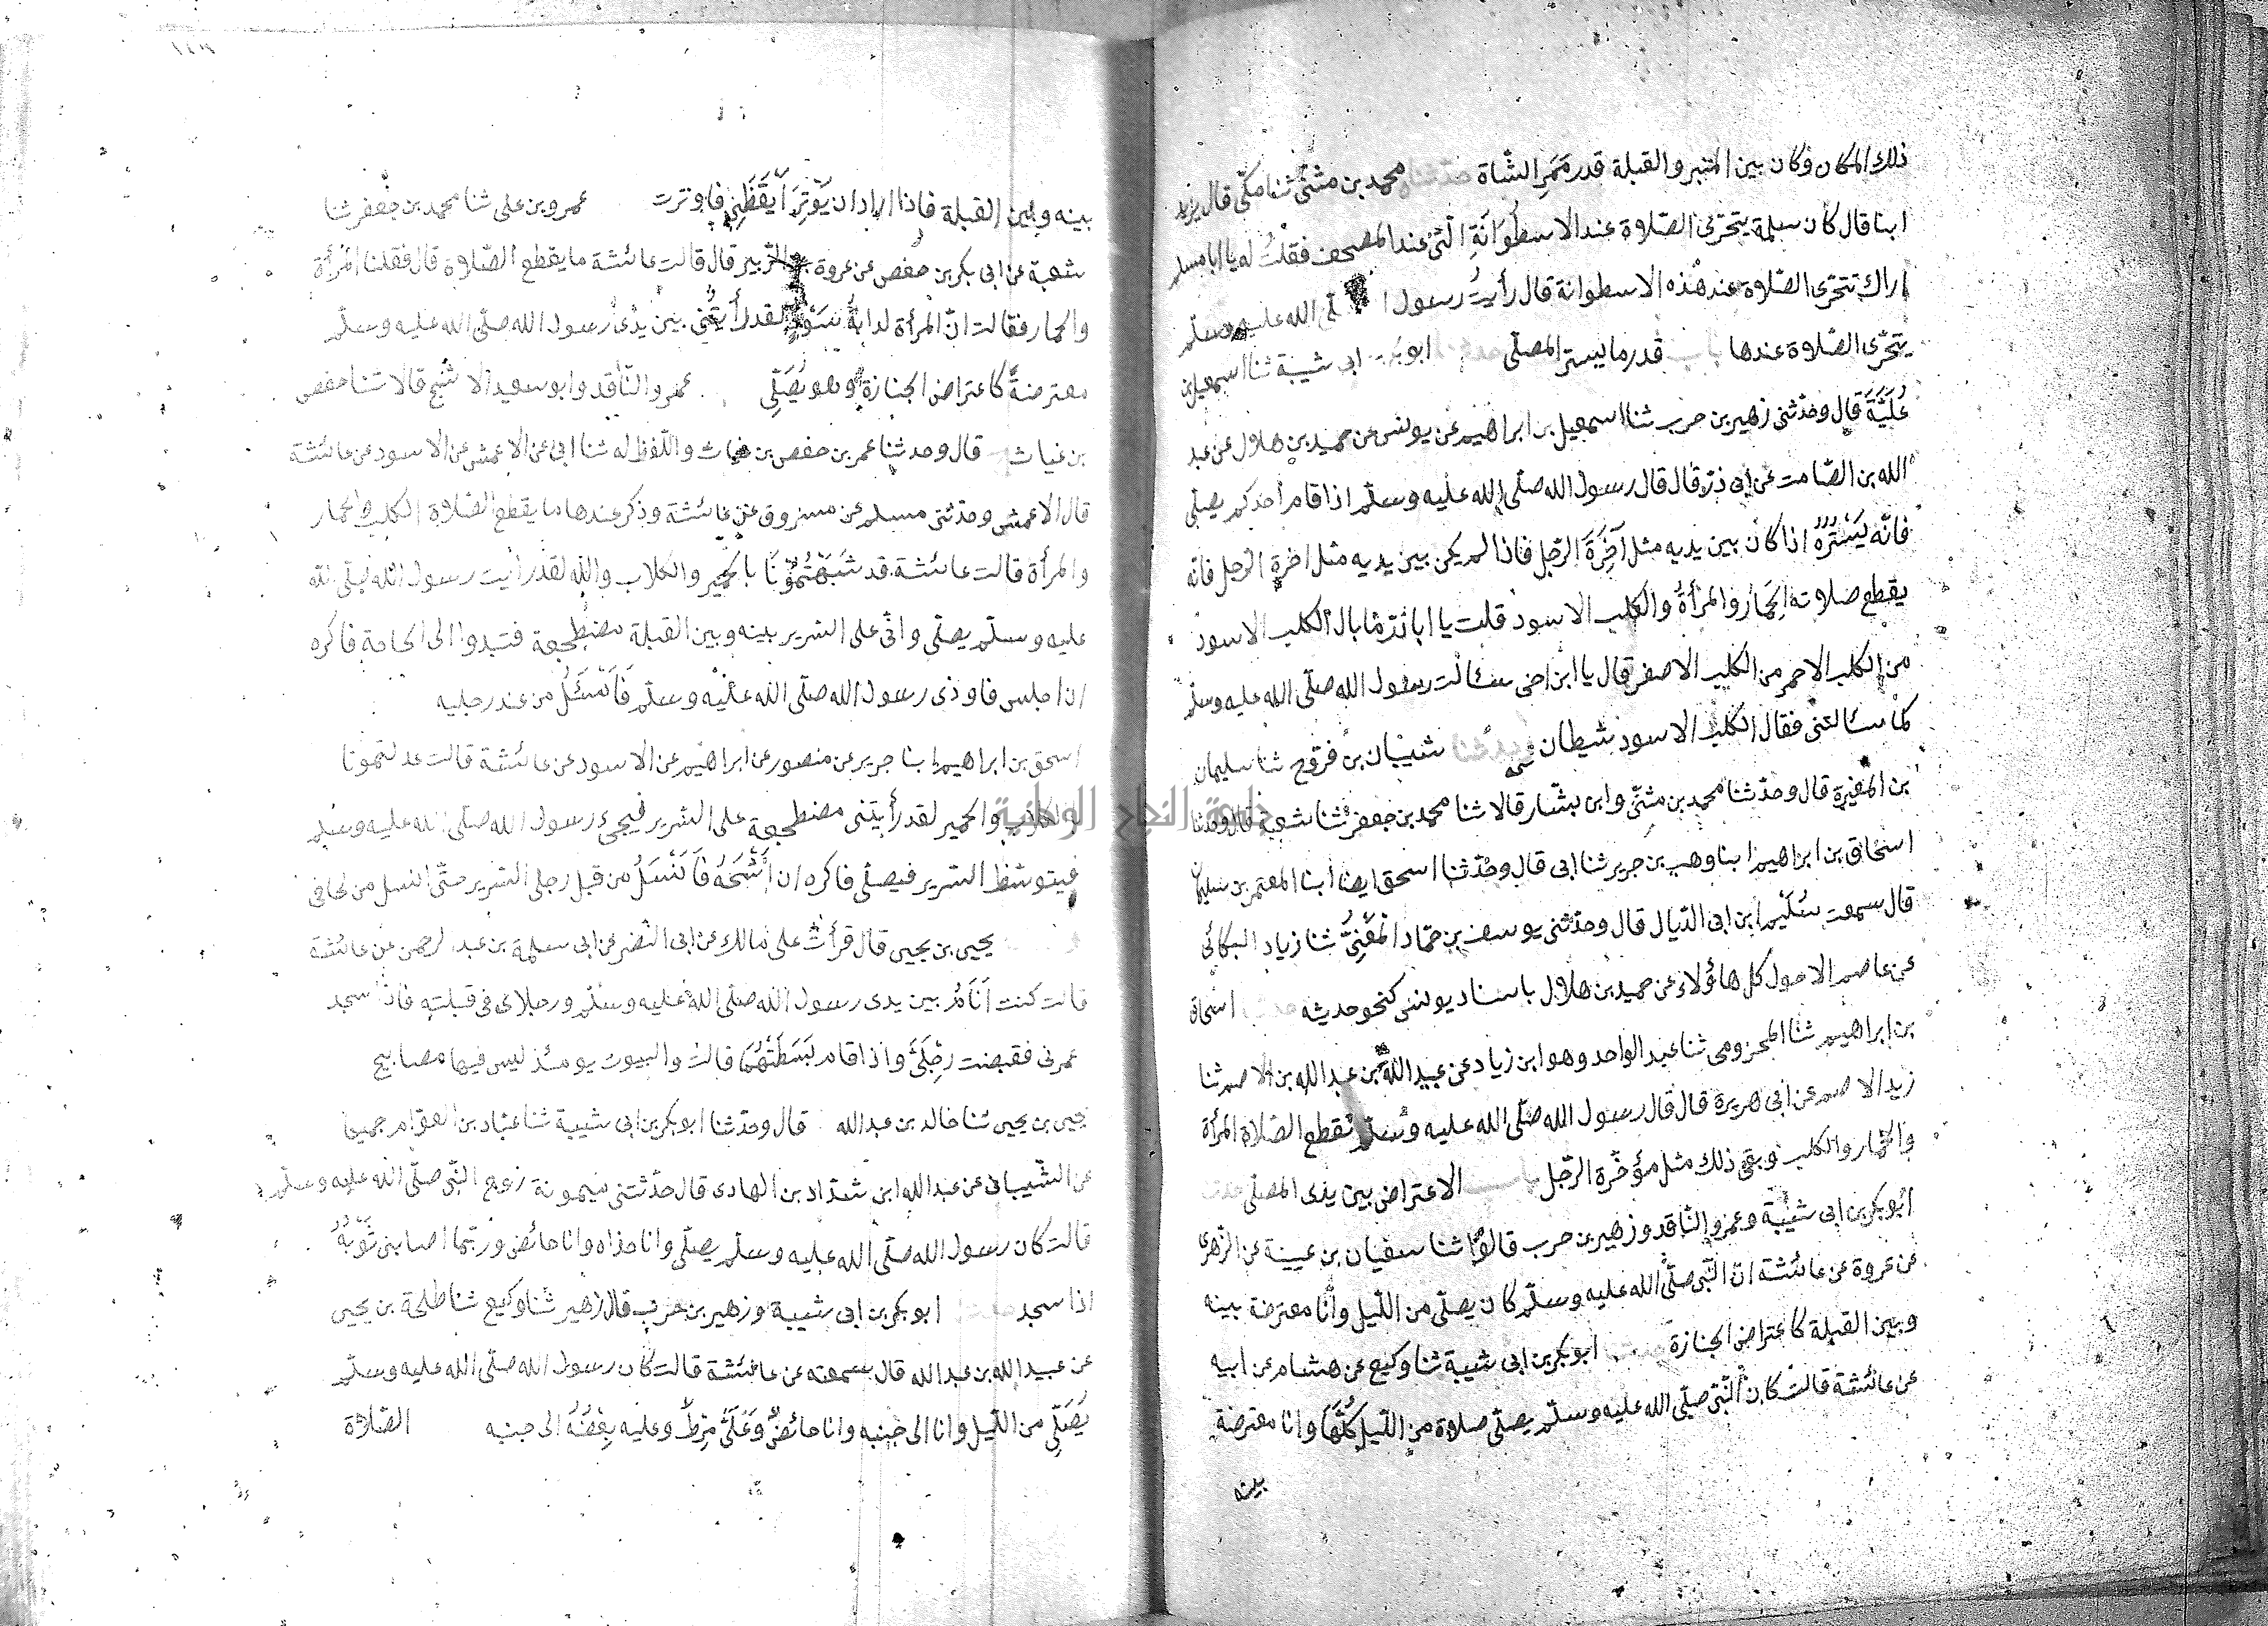 ذلك المكان وكان بين المنبر والقبلة قدر مَمَرِ الشّاة حدثنا محمد بن مثنّى ثنا مكّى قال يزيد
ابنا قال كان سلمة يتحرّى الصّلاة عند الاسطُوَانَةِ الّتى عند المصحف فقلتُ له يا ابا مسلم
اراك تتحرّى الصّلاة عند هذه الاسطوانة قال رأيتُ رسول الله صلّى الله عليه وسلّم
يتحرّى الصّلاة عندها باب قدر ما يستر المصلّى حدثنا ابو بكر بن ابى شيبة ثنا اسمعيل بن
عُلَيَّةَ قال وحدّثنى زهير بن حرب ثنا اسمعيل بن ابراهيم عن يونس عن حميد بن هلال عن عبد
الله بن الصّامت عن ابى ذرّ قال قال رسول الله صلّى الله عليه وسلّم اذا قام أحدكم يصلّى
فانّه يَسْتُرُهُ اذا كان بين يديه مثل آخِرَةِ الرّحل فاذا لم يكن بين يديه مثل اخرة الرّحل فانّه
يقطع صلاته الحِمَار والمرأةُ والكلب الاسود قلت يا ابا ذرّ ما بال الكلب الاسود
من الكلب الاحمر من الكلب الاصفر قال يا ابن اخى سئالت رسول الله صلّى الله عليه وسلّم
كما سئالتنى فقال الكلب الاسود شيطان وحدثنا شيبان بن فروخ ثنا سليمان
بن المغيرة قال وحدّثنا محمد بن مثنّى وابن بشّار قالا ثنا محمد بن جعفر ثنا شعبة قال وحدّثنا
اسحاق بن ابراهيم ابنا وهب بن جرير ثنا ابى قال وحدّثنا اسحق ايضا ابنا المعتمر بن سليمان
قال سمعت سُلَيْم ابن ابى الذّيال قال وحدّثنى يوسف بن حمّاد المَعْنِىُّ ثنا زياد البكائى
عن عاصم الاحول كل هاؤلاء عن حميد بن هلال باسناد يونس كنحو حديثه حدثنا اسحاق
بن ابراهيم ثنا المخزومى ثنا عبد الواحد وهو ابن زياد عن عبيد الله بن عبد الله بن الاصم ثنا
زيد الاصم عن ابى هريرة قال قال رسول الله صلّى الله عليه وسلّم تقطع الصّلاة المرأة
والحمار والكلب وبقى ذلك مثل مؤخّرة الرّحل باب الاعتراض بين يدى المصلّى حدثنا
ابو بكر بن ابى شيبة وعمرو النّاقد وزهير بن حرب قالوا ثنا سفيان بن عيينة عن الزهرى
عن عروة عن عائشة انّ النّبى صلّى الله عليه وسلّم كان يصلّى من اللّيل وأنا معترضة بينه
وبين القبلة كاعتراض الجنازة حدثنا ابو بكر بن ابى شيبة ثنا وكيع عن هشام عن ابيه
عن عائشة قالت كان النّبّى صلّى الله عليه وسلّم يصلّى صلاة من اللّيل كُلَّهَا وانا معترضة
بينه
بينه وبين القبلة فاذا اراد ان يُوْتِرَ أيقَظَنِى فاوترت عمرو بن على ثنا محمد بن جعفر ثنا
شعبة عن ابى بكر بن حفص عن عروة بن الزّبير قال قالت عائشة ما يقطع الصّلاة قال فقلنا المرأة
والحمار فقالت انّ المرأة لدابةُ سَوْءٍ لقد رأيتُنِى بين يدْى رسول الله صلّى الله عليه وسلّم
معترضةً كاعتراض الجنازة وهو يُصَلِّى عمرو النّاقد وابو سعيد الاشجّ قالا ثنا حفص
بن غياث قال وحدثنا عمر بن حفص بن غياث واللّفظ له ثنا ابى عن الاعمش عن الاسود عن عائشة
قال الاعمش وحدّثنى مسلم عن مسروق عن عائشة وذكر عندها ما يقطع الصّلاة الكلب والحمار
والمرأة قالت عائشة قد شَبَّهْتُمُوْنَا بالحمير والكلاب والله لقد رأيت رسول الله صلّى الله
عليه وسلّم يصلّى وانّى على السّرير بينه وبين القبلة مضطجعة فتبدوا الى الحاجة فاكره
ان اجلس فاوذى رسول الله صلّى الله عليه وسلّم فَاَنْسَلُّ من عند رجليه
اسحق بن ابراهيم ابنا جرير عن منصور عن ابراهيم عن الاسود عن عائشة قالت عدلتمونا
بالكلاب والحمير لقد رأيتنى مضطجعة على السّرير فيجىء رسول الله صلّى الله عليه وسلّم
فيتوسّط السّرير فيصلّى فاكره ان أَسْنَحَهُ فَاَنْسَلُّ من قبل رجلى السّرير حتّى انسل من لحافى
يحيى بن يحيى قال قرأتُ على مالك عن ابى النّضر عن ابى سلمة بن عبد الرحمن عن عائشة
قالت كنت اَنَامُ بين يدى رسول الله صلّى الله عليه وسلّم ورجلاى فى قبلته فاذا سجد
غمزنى فقبضت رِجْلَىَّ واذا قام بَسَطْتُهُمَا قالت والبيوت يومئذ ليس فيها مصابيح
يحيى بن يحيى ثنا خالد بن عبد الله قال وحدّثنا ابو بكر بن ابى شيبة ثنا عبّاد بن العوّام جميعا
عن الشّيبانى عن عبد الله ابن شدّاد بن الهادى قال حدّثتنى ميمونة زوج النّبّى صلّى الله عليه وسلّم
قالت كان رسول الله صلّى الله عليه وسلّم يصلّى وانا حذاه وانا حائض وربّما اصابنى ثَوْبُهُ
اذا سجد حدثنا ابو بكر بن ابى شيبة وزهير بن حرب قال زهير ثنا وكيع ثنا طلحة بن يحيى
عن عبيد الله بن عبد الله قال سمعته عن عائشة قالت كان رسول الله صلّى الله عليه وسلّم
يُصَلِّى من اللّيل وانا الى جنبه وانا حائضٌ وَعَلَىَّ مِرْطٌ وعليه بَعْضُهُ الى جنبه الصّلاة